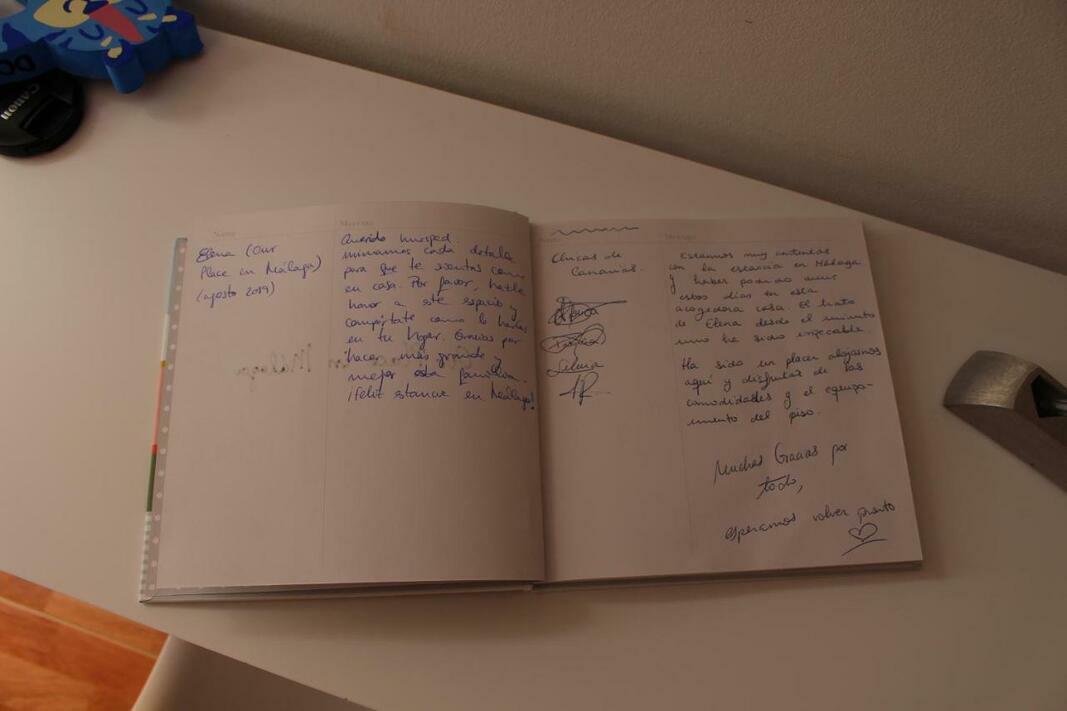 CANON
DO
Elena (Our
Place en Málaga)
(agosto 2019)
Querido huésped.
mimamos cada detalle
para que te sientas como
en casa. Por favor, hazle
honor a este espacio y
compórtate como lo harías
en tu hogar. Gracias por
hacer más grande y
mejor esta familia.
¡Feliz estancia en Málaga!
Málaga
Chicas de
Canarias.
Estamos muy contentas
con la estancia en Málaga
y haber podido vivir
estos días en esta
acogedora casa. El trato
de Elena desde el minuto
uno ha sido impecable.
Ha sido un placer alojarnos
aquí y disfrutar de las
comodidades y el equipa-
miento del piso.
Muchas Gracias por
todo,
esperamos volver pronto